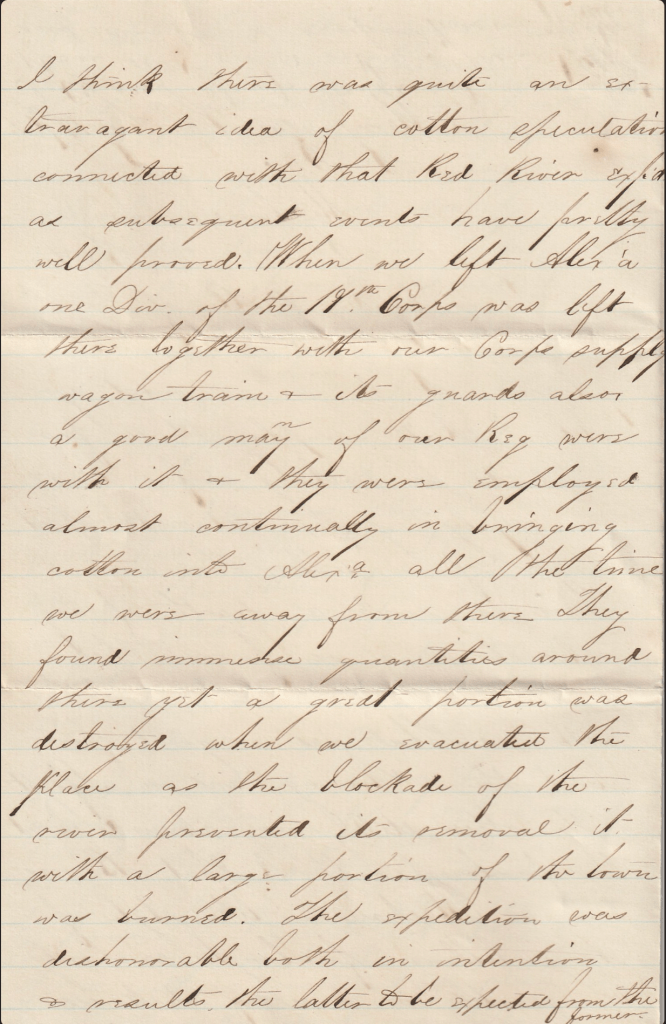 I think there was quite an ex-
travagant idea of cotton speculation
connected with that Red River exp'd
as subsequent events have pretty
well proved. When we left Alex'a
one Div. of the 19th Corps was left
there together with our Corps supply
wagon train & its guards also,
a good many of our Reg were
with it & they were employed
almost continually in bringing
cotton into Alex'a all the time
we were away from there They
found immense quantities around
there yet a great portion was
destroyed when we evacuated the
place as the blockade of the
river prevented its removal it
with a large portion of the town
was burned. The expedition was
dishonorable both in intention
& results, the latter to be expected from the
former.